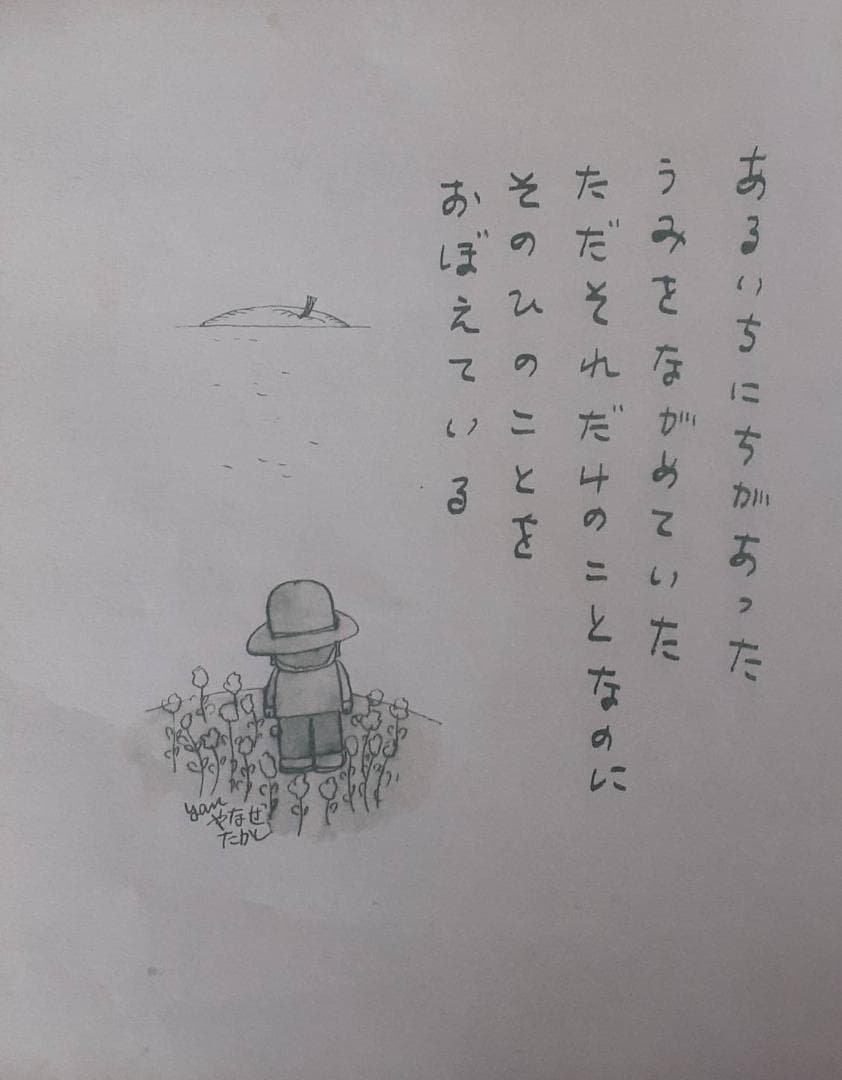 あるいちにちがあった
うみをながめていた
ただそれだけのことなのに
そのひのことを
おぼえている
yan
やなせ
たかし